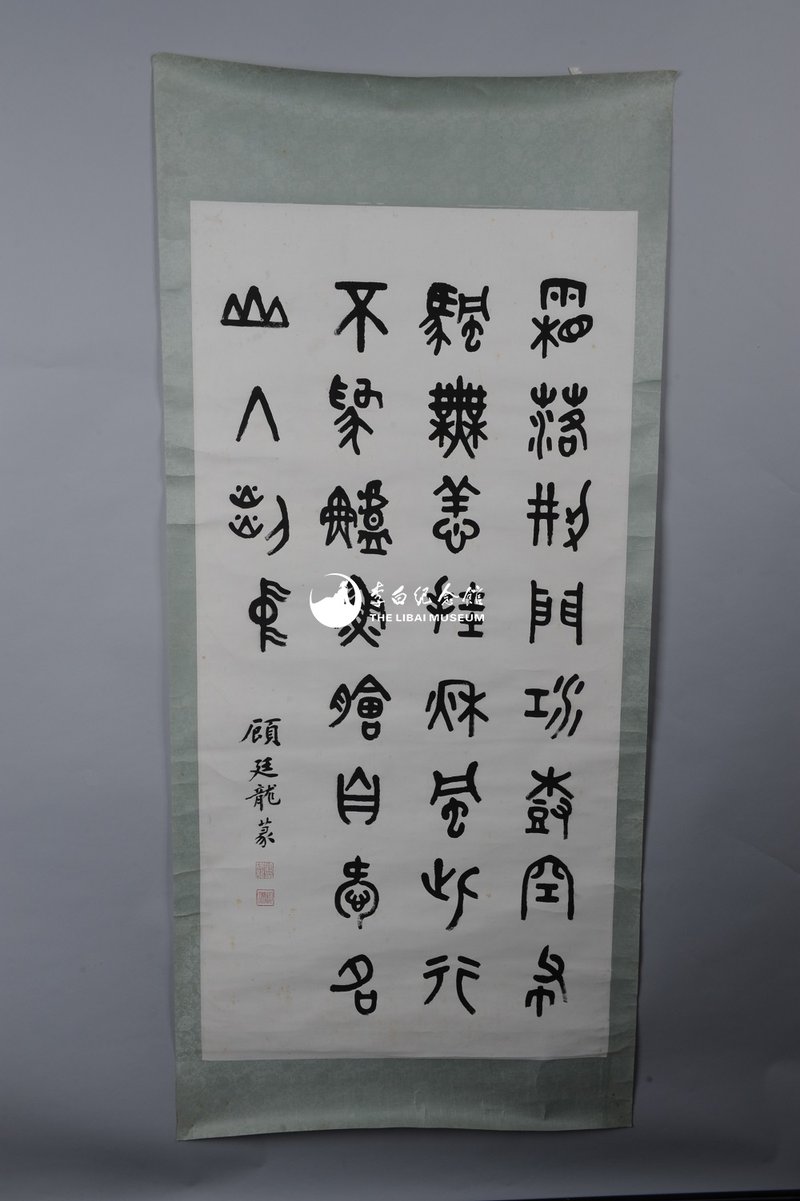 霜落荆門江樹空布
颿無恙挂秋風此行
不為鱸魚膾自愛名
山入剡中
顧廷龍篆
李白纪念館
THE LIBAI MUSEUM